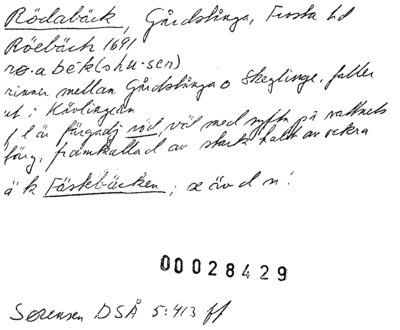 Rödabäck, Gårdstånga, Frosta hd
Röebäch 1691
rø.a bék(shu-sen)
rinner mellan Gårdstånga o Skeglinge, faller
ut i Kävlingeån
f l är färgadj röd, väl med syfte på vattnets
färg, framkallad av stark halt av ockra
ä k Fäskbäcken; se äv d n!
00028429
Sørensen DSÅ 5:413 ff